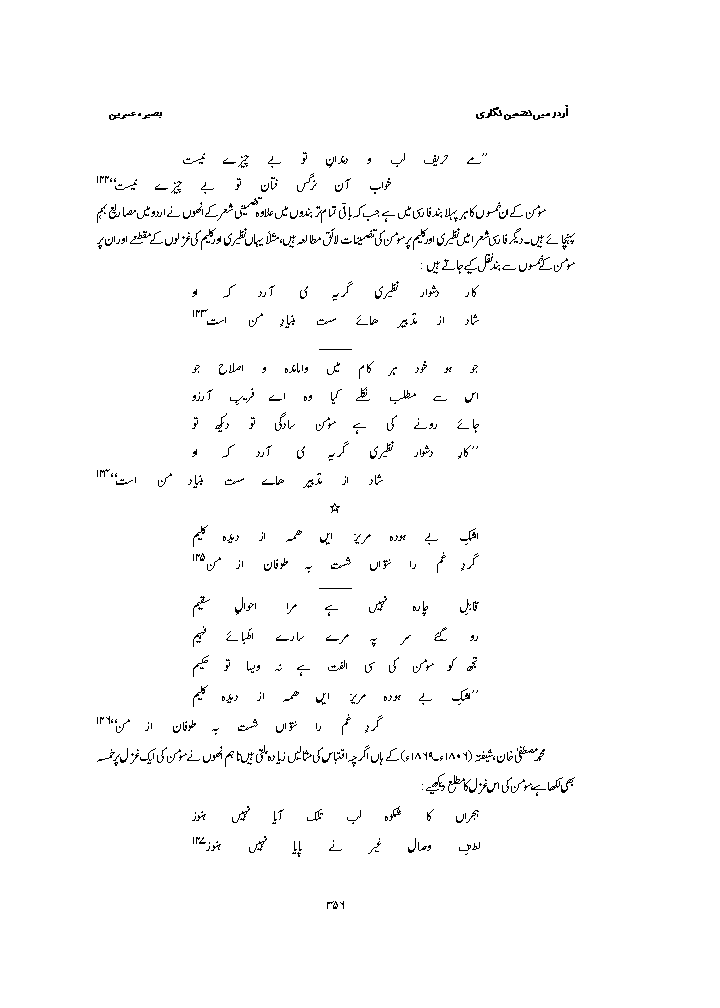 اُردو میں تضمین نگاری
بصیرہ عنبرین
’’مے حریف لب و دندانِ تو بے چیزے نیست
خواب آں نرگس فتان تو بے چیزے نیست‘‘۱۲۲
مومن کے ان خمسوں کا ہر پہلا بند فارسی میں ہے جب کہ باقی تمام تر بندوں میں علاوہ تضمینی شعر کے انھوں نے اردو میں مصاریع بہم
پہنچائے ہیں۔ دیگر فارسی شعرا میں نظیری اور کلیم پر مومن کی تضمینات لائق مطالعہ ہیں، مثلاً یہاں نظیری اور کلیم کی غزلوں کے مقطعے اور ان پر
مومن کے خمسوں سے بند نقل کیے جاتے ہیں :
کار دشوار نظیری گریہ می آرد کہ او
شاد از تدبیر ھائے سست بنیادِ من است۱۲۳
جو ہو خود ہر کام میں واماندہ و اصلاح جو
اس سے مطلب نکلے کیا وہ اے فریبِ آرزو
جائے رونے کی ہے مومن سادگی تو دیکھ تو
’’کارِ دشوار نظیری گریہ می آرد کہ او
شاد از تدبیر ھاے سست بنیاد من است‘‘۱۲۴
☆
اشکِ بے ہودہ مریز ایں ھمہ از دیدہ کلیم
گردِ غم را نتواں شست بہ طوفان از من۱۲۵
قابلِ چارہ نہیں ہے مرا احوالِ سقیم
رو گئے سر پہ مرے سارے اطبائے فہیم
تجھ کو مومن کی سی الفت ہے نہ ویسا تو حکیم
’’اشکِ بے ہودہ مریز ایں ھمہ از دیدہ کلیم
گردِ غم را نتواں شست بہ طوفان از من‘‘۱۲۶
محمد مصطفیٰ خان، شیفتہ (۱۸۰۶ء۔۱۸۶۹ء) کے ہاں اگرچہ اقتباس کی مثالیں زیادہ ملتی ہیں تاہم انھوں نے مومن کی ایک غزل پر خمسہ
بھی لکھا ہے مومن کی اس غزل کا مطلع دیکھیے :
ہجراں کا شکوہ لب تلک آیا نہیں ہنوز
لطفِ وصال غیر نے پایا نہیں ہنوز۱۲۷
۳۵۶